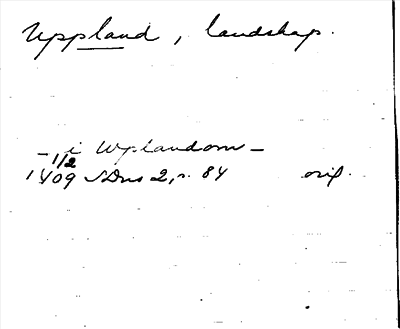 Uppland, landskap.
– i Wplandom –
1/2
1409 SDns 2, s. 84 orig.